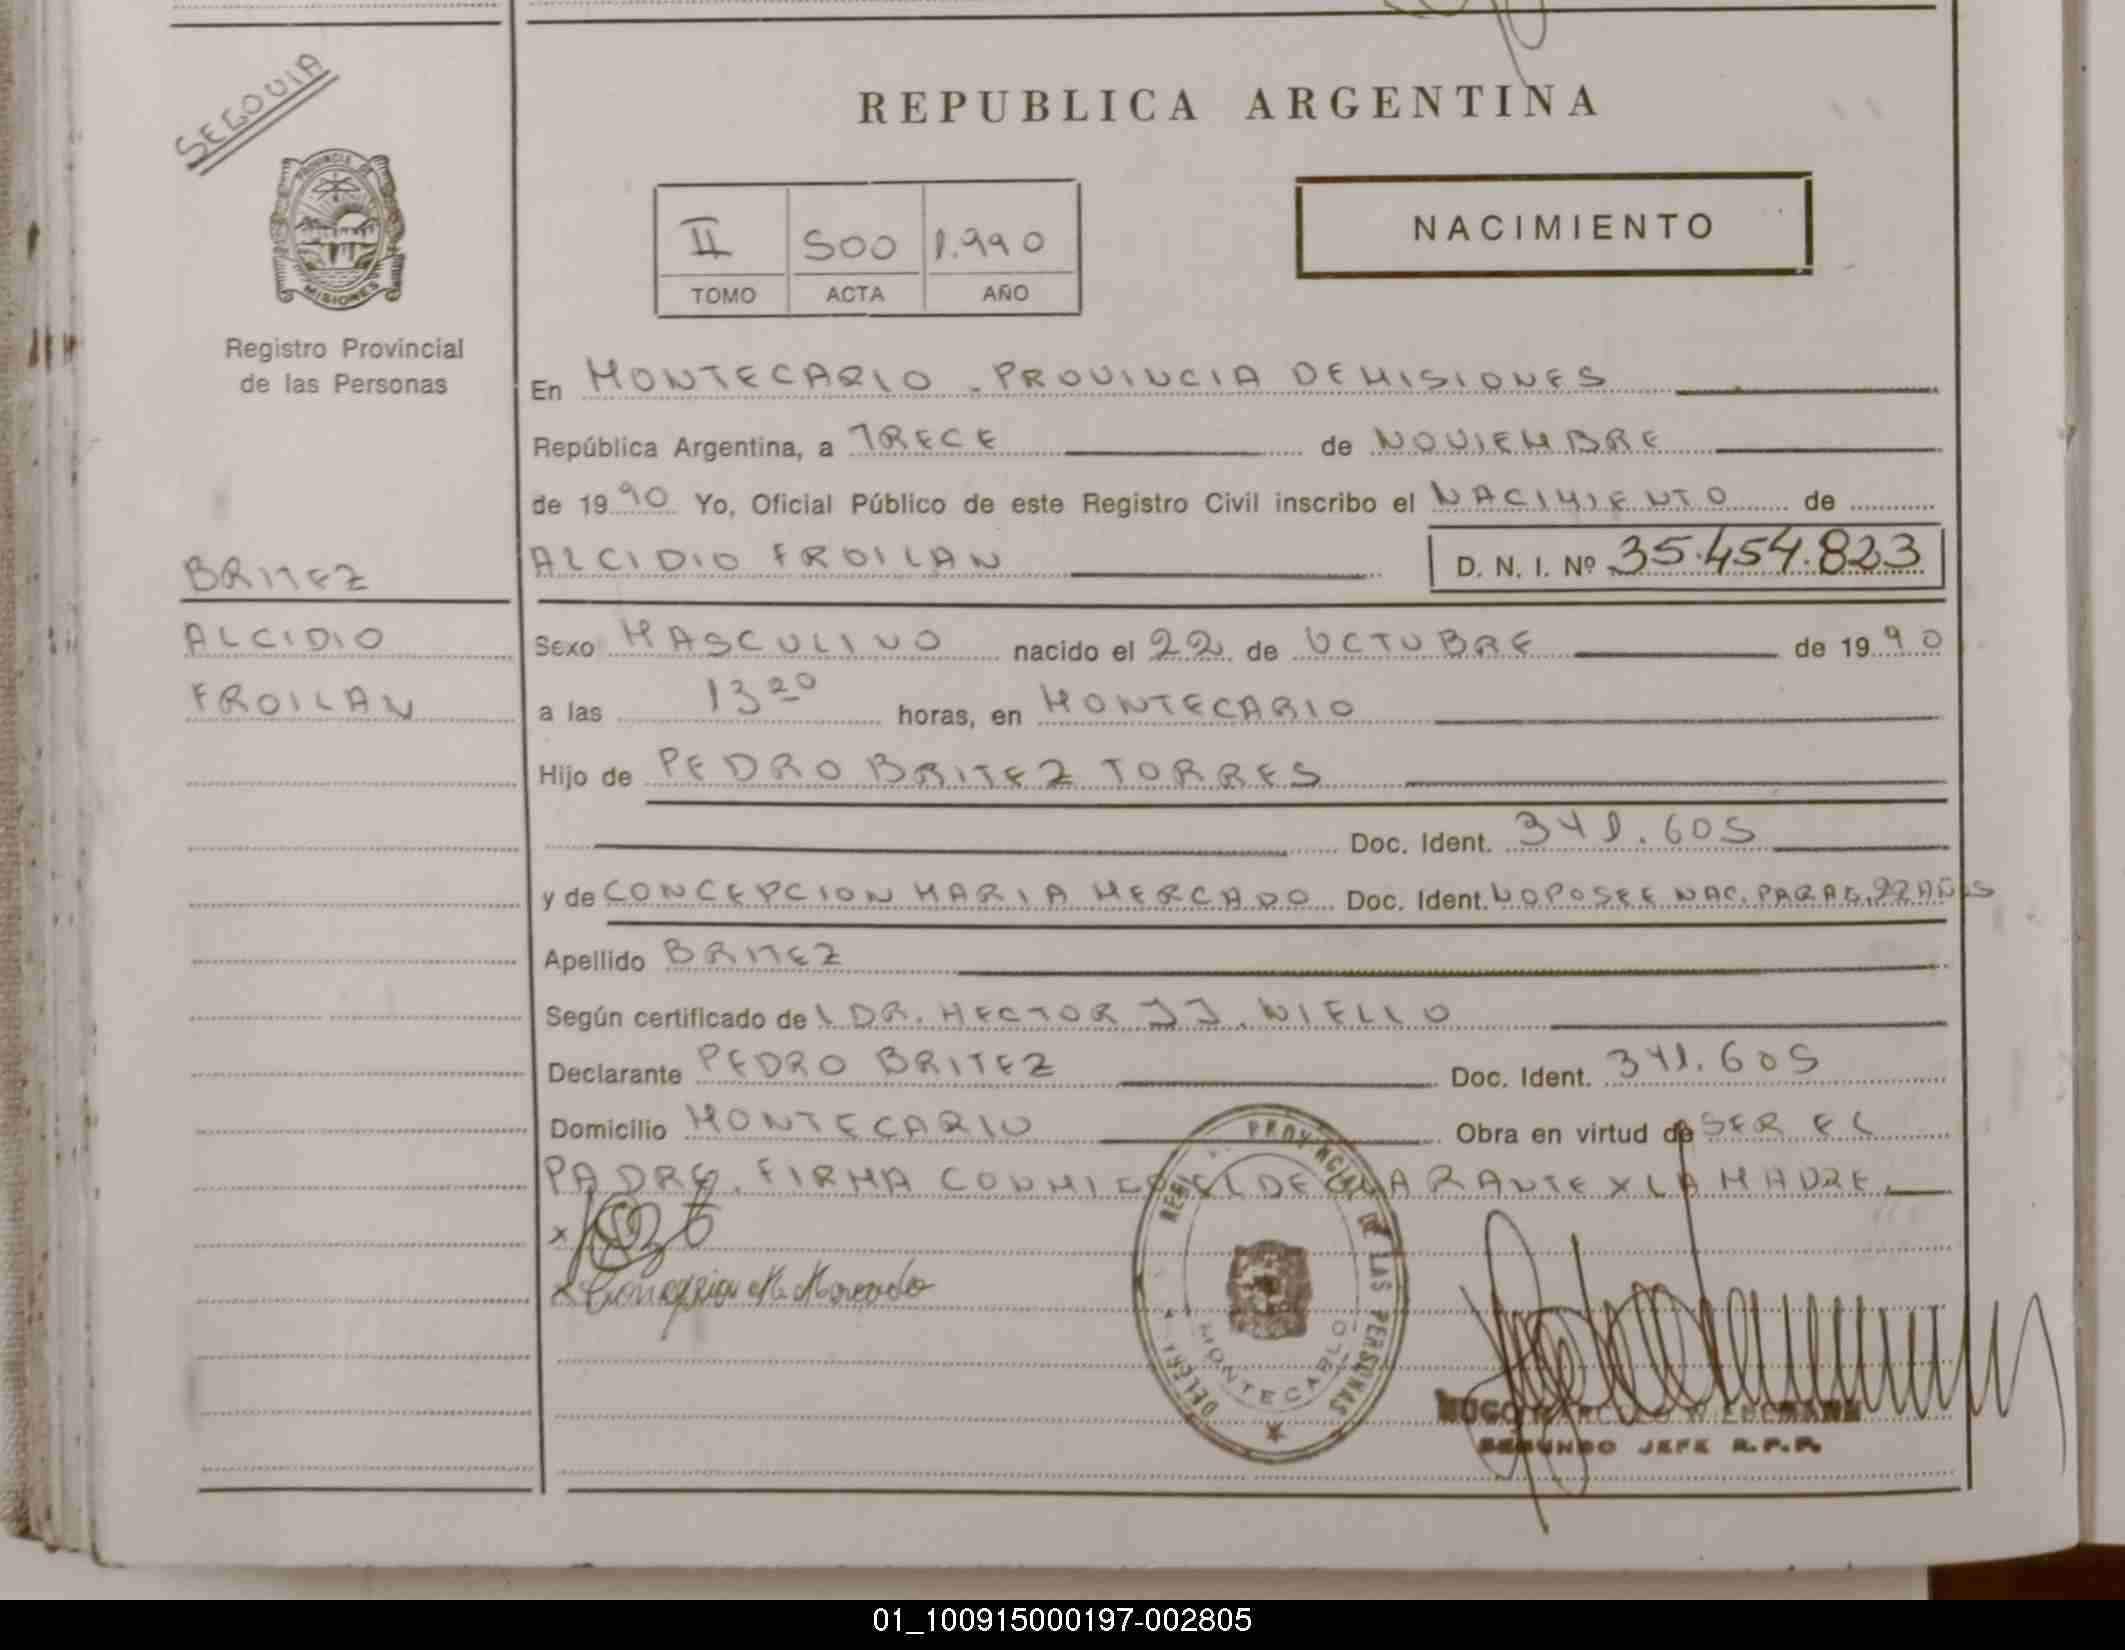 SEGOVIA
REPUBLICA ARGENTINA
PROVINCIA DE MISIONES
II 500 1.990
TOMO ACTA AÑO
NACIMIENTO
Registro Provincial
de las Personas
En MONTECARLO - PROVINCIA DE MISIONES
República Argentina, a TRECE de NOVIEMBRE
de 1990 Yo, Oficial Público de este Registro Civil inscribo el NACIMIENTO de
BRITEZ
ALCIDIO FROILAN D. N. I. Nº 35.454.823
ALCIDIO
Sexo MASCULINO nacido el 22 de OCTUBRE de 1990
FROILAN
a las 13 20 horas, en MONTECARLO
Hijo de PEDRO BRITEZ TORRES
Doc. Ident. 341.605
y de CONCEPCION MARIA MERCADO Doc. Ident. NO POSEE NAC. PARAG. 22 AÑOS
Apellido BRITEZ
Según certificado del DR. HECTOR JJ. NIELLO
Declarante PEDRO BRITEZ Doc. Ident. 341.605
Domicilio MONTECARLO Obra en virtud de SER EL
PADRE. FIRMA CONMIGO EL DECLARANTE X LA MADRE.
x
x Concepcion M. Mercado
PROVINCIAL DE LAS PERSONAS
MONTECARLO
HUGO MARCELO WIEDEMANN
SEGUNDO JEFE R.P.P.
01_100915000197-002805